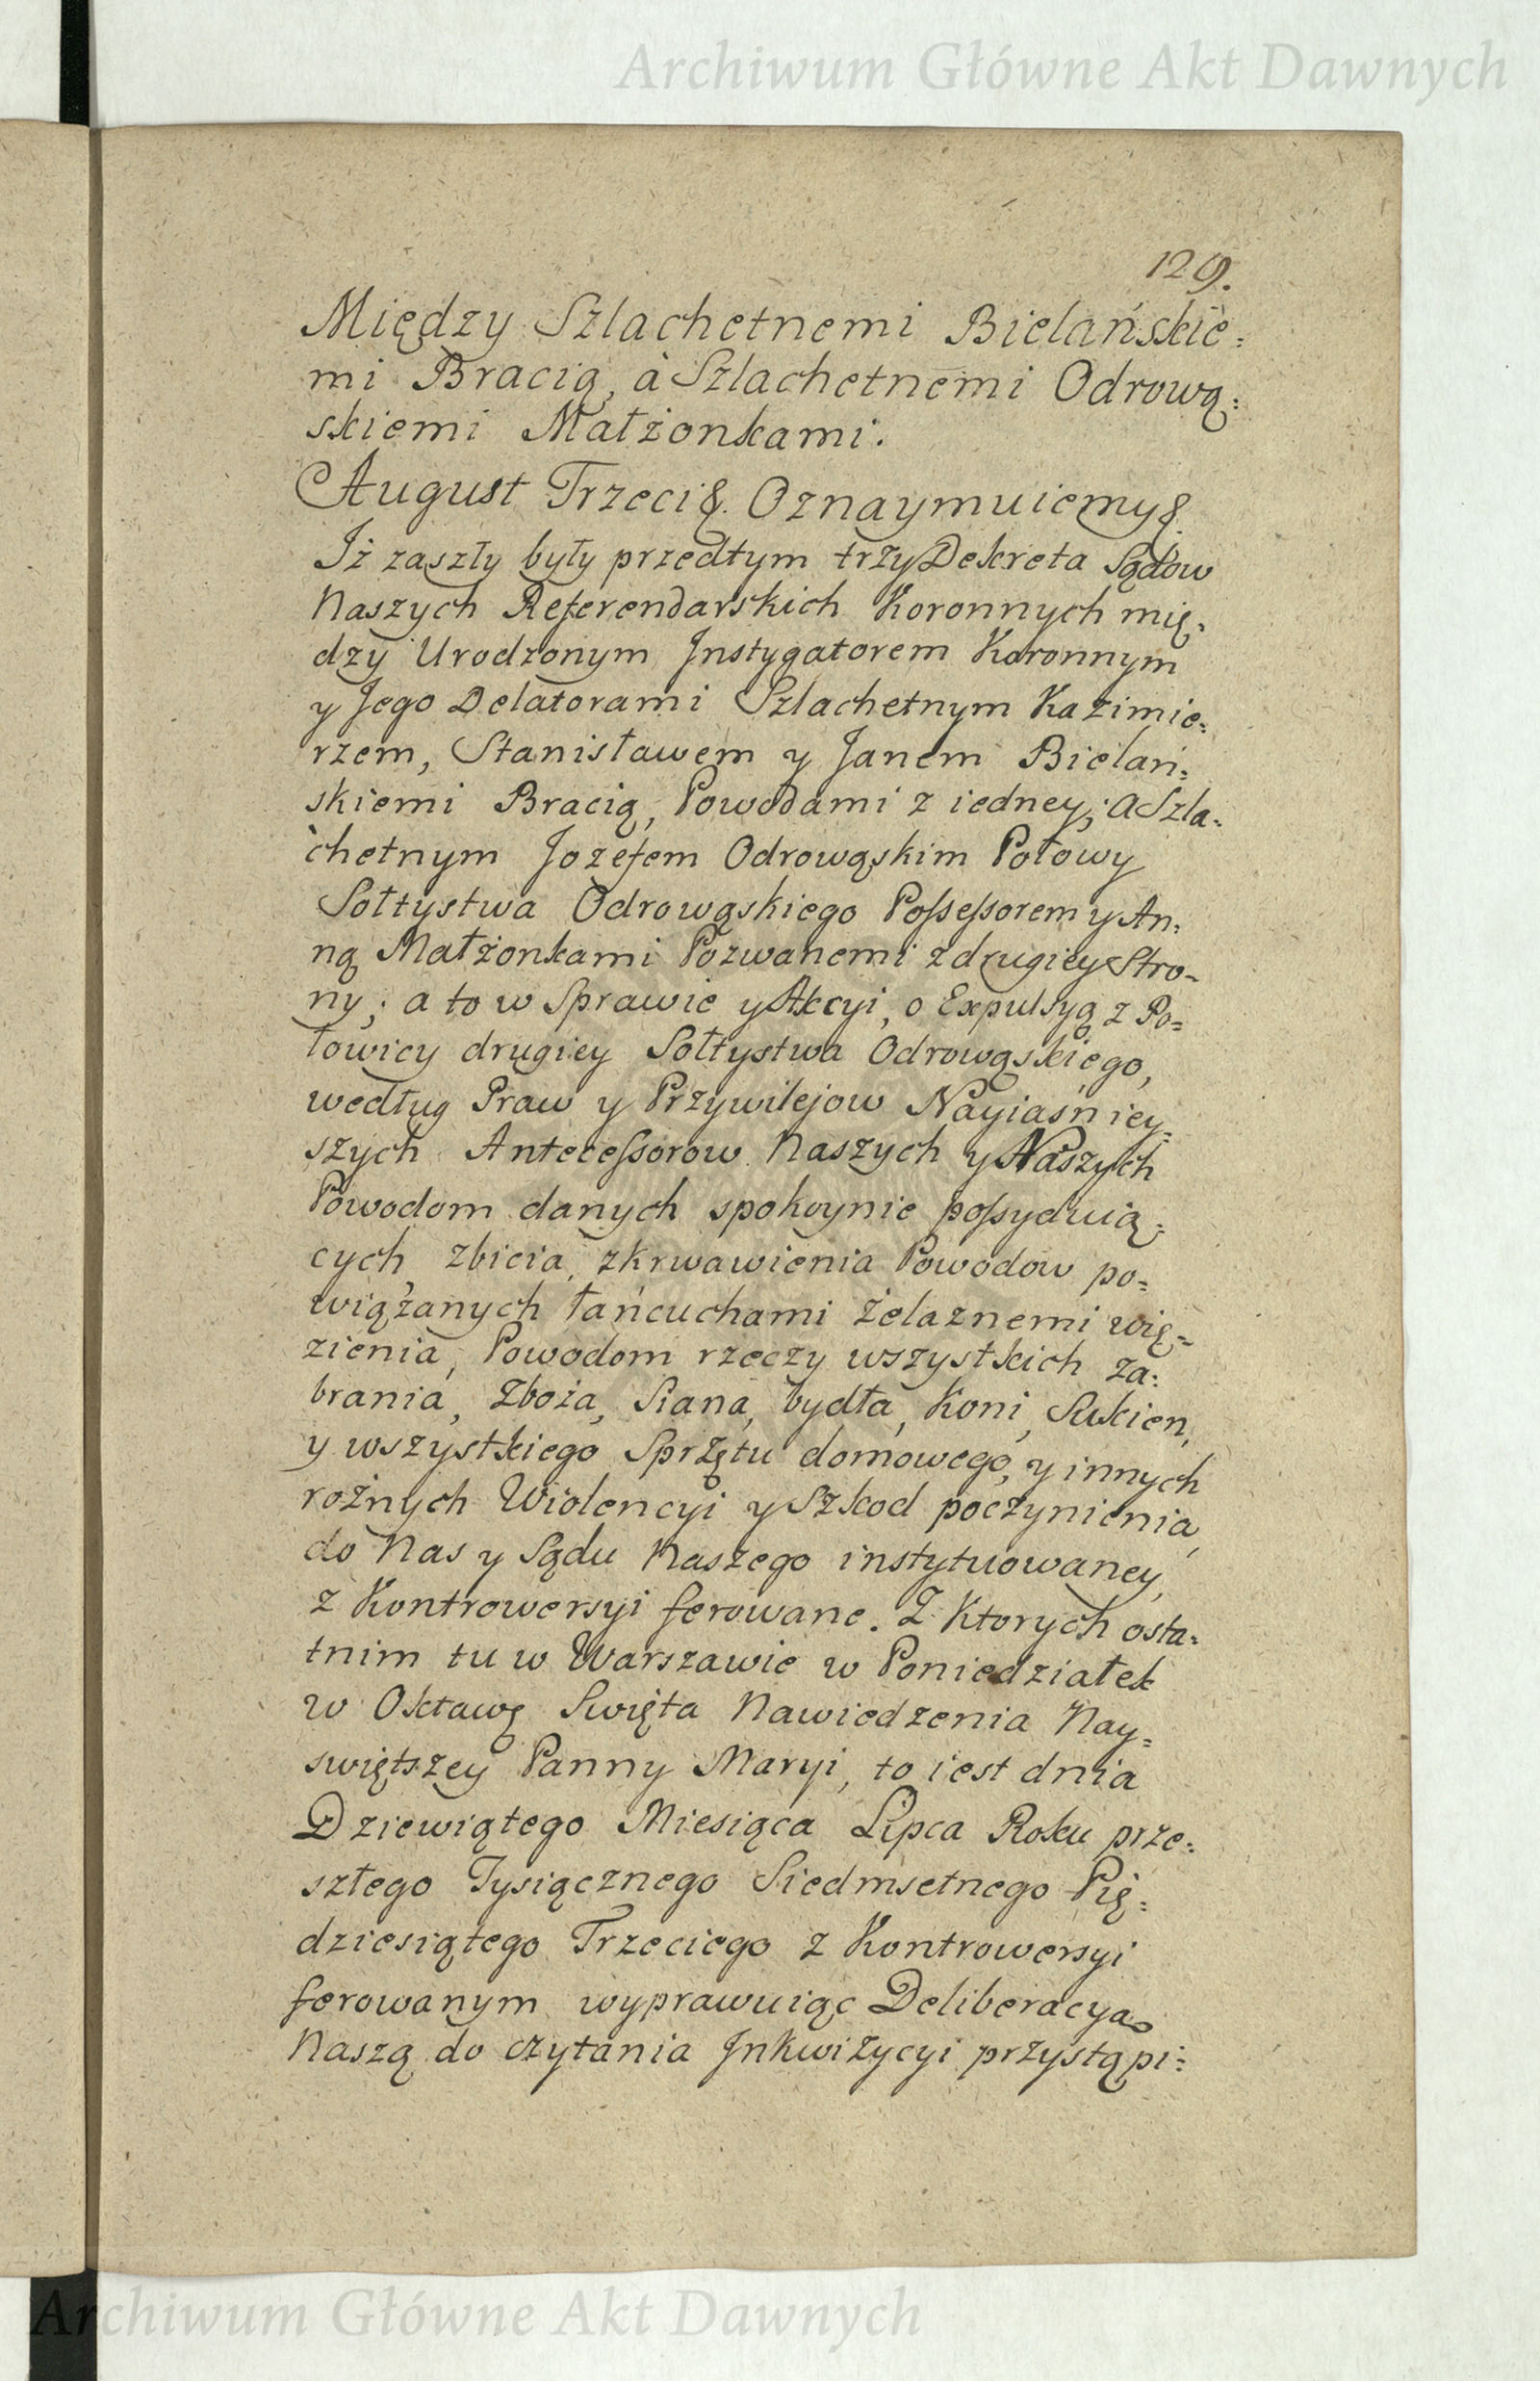 Archiwum Główne Akt Dawnych
129.
Między Szlachetnemi Bielańskie=
mi Bracią, à Szlachetnemi Odrową=
skiemi Małżonkami.
August Trzeci &. Oznaymuiemy &.
Iż zaszły były przedtym trzy Dekreta Sądow
Naszych Referendarskich Koronnych mię=
dzy Urodzonym Instygatorem Koronnym
y Jego Delatorami Szlachetnym Kazimie=
rzem, Stanisławem y Janem Bielań=
skiemi Bracią, Powodami z iedney; a Szla=
chetnym Jozefem Odrowąskim Połowy
Sołtystwa Odrowąskiego Possessorem y An=
ną Małżonkami Pozwanemi z drugiey Stro=
ny; a to w Sprawie y Akcyi, o Expulsyą z Po=
łowicy drugiey Sołtystwa Odrowąskiego,
według Praw y Przywilejow Nayiaśniey=
szych Antecessorow Naszych y Naszych
Powodom danych spokoynie possyduią=
cych, zbicia, zkrwawienia Powodow po=
wiązanych łańcuchami żelaznemi wię=
zienia, Powodom rzeczy wszystkich za=
brania, Zboża, Siana, bydła, Koni, Sukien,
y wszystkiego Sprzętu domowego, y innych
rożnych Wiolencyi y Szkod poczynienia,
do Nas y Sądu Naszego instytuowaney,
z Kontrowersyi ferowane. Z Ktorych osta=
tnim tu w Warszawie w Poniedziałek
w Oktawę Swięta Nawiedzenia Nay=
swiętszey Panny Maryi, to iest dnia
Dziewiątego Miesiąca Lipca Roku prze=
szłego Tysiącznego Siedmsetnego Pię=
dziesiątego Trzeciego z Kontrowersyi
ferowanym wyprawuiąc Deliberacyą
Naszą do czytania Inkwizycyi przystąpi=
Archiwum Główne Akt Dawnych